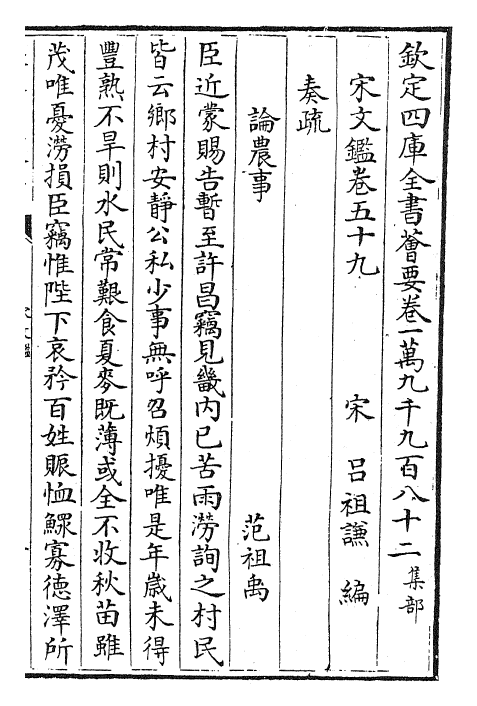 欽定四庫全書薈要卷一萬九千九百八十二 集部
宋文鑑卷五十九 宋 呂祖謙 編
奏疏
論農事 范祖禹
臣近蒙賜告暫至許昌竊見畿内已苦雨澇詢之村民
皆云鄉村安靜公私少事無呼召煩擾唯是年歲未得
豐熟不旱則水民常艱食夏麥既薄或全不收秋苗雖
茂唯憂澇損臣竊惟陛下哀矜百姓賑恤鰥寡德澤所